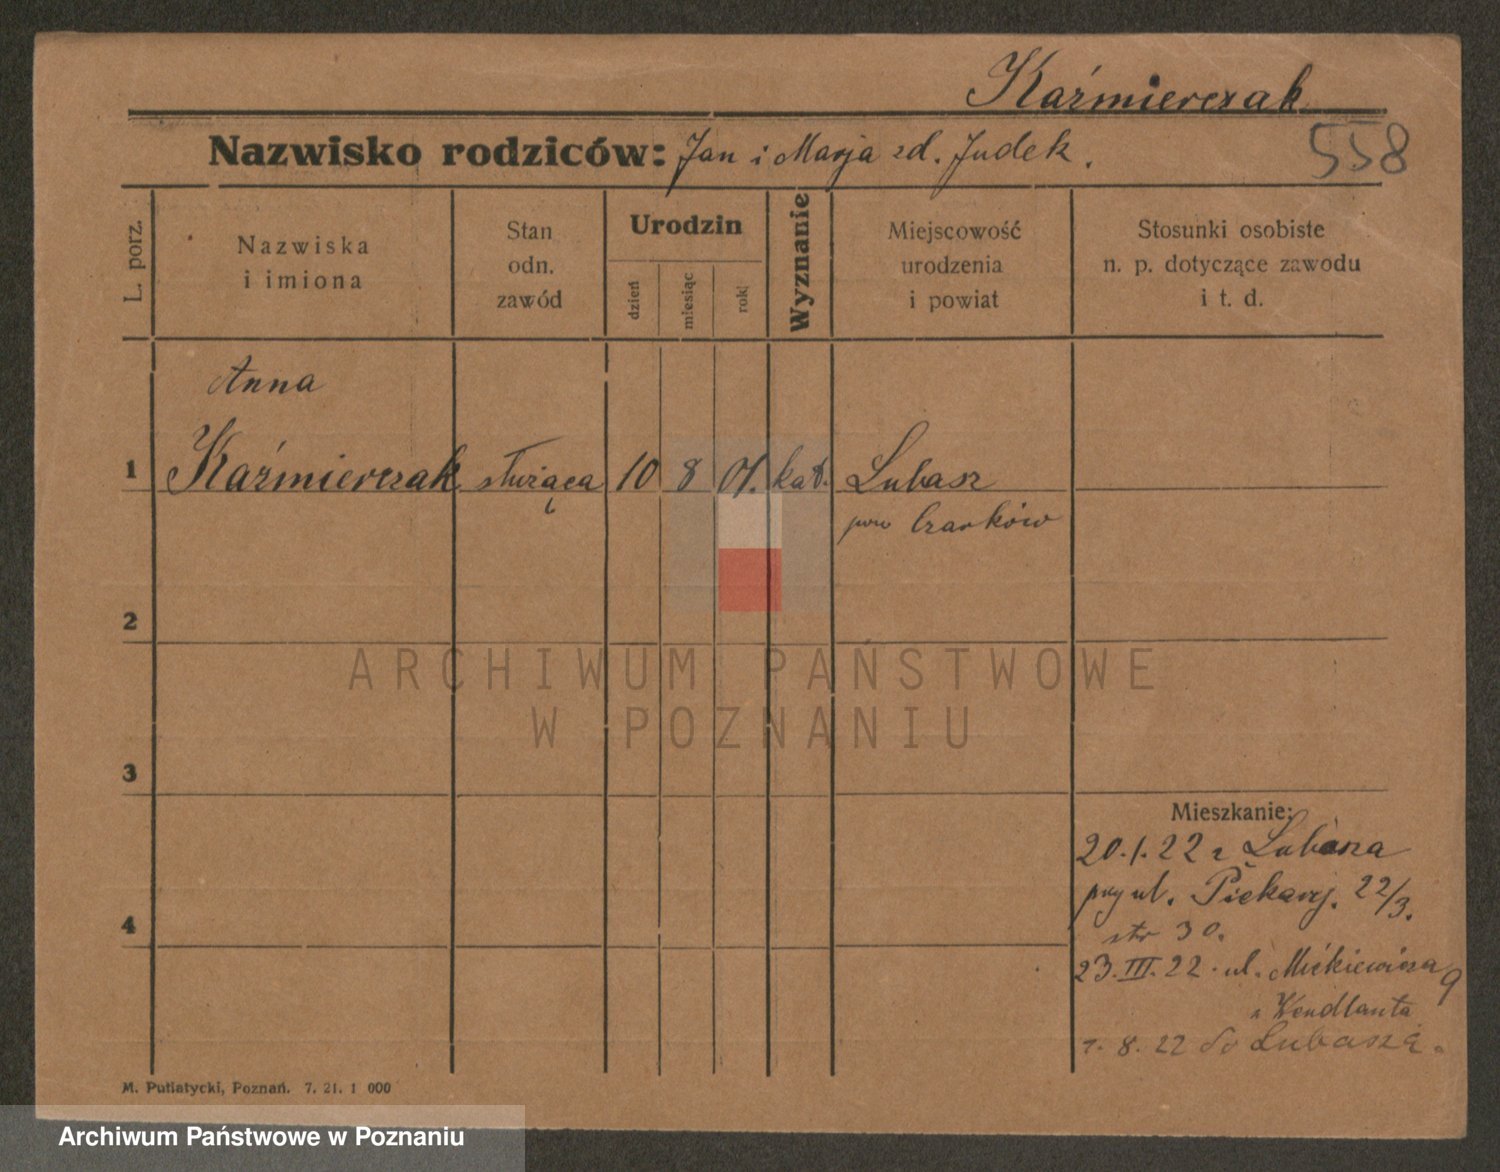 Kaźmierczak
558
Nazwisko rodziców: Jan i Marja zd. Judek.
L. porz.
Nazwiska
i imiona
Stan
odn.
zawód
Urodzin
dzień
miesiąc
rok
Wyznanie
Miejscowość
urodzenia
i powiat
Stosunki osobiste
n. p. dotyczące zawodu
i t. d.
Anna
1 Kaźmierczak służąca 10 8 01. kat. Lubasz
pow Czarków
2
ARCHIWUM PAŃSTWOWE
W POZNANIU
3
Mieszkanie:
20.1.22 z Lubasza
przy ul. Piekarej. 22/3.
str 30.
4
23.III.22. ul. Mickiewicza 9
Wendlanta
8. 22 do Lubasza.
M. Putiatycki, Poznań. 7. 21. 1 000
Archiwum Państwowe w Poznaniu